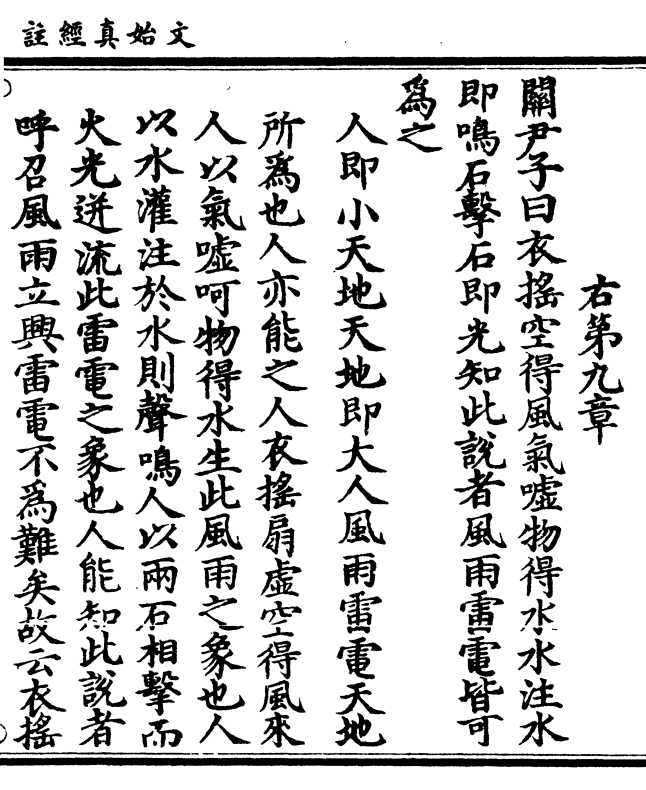 文始真經註
右第九章
關尹子曰衣搖空得風氣噓物得水水注水
即鳴石擊石即光知此說者風雨雷電皆可
爲之
人即小天地天地即大人風雨雷電天地
所爲也人亦能之人衣搖扇虛空得風來
人以氣噓呵物得水生此風雨之象也人
以水灌注於水則聲鳴人以兩石相擊而
火光迸流此雷電之象也人能知此說者
呼召風雨立興雷電不爲難矣故云衣搖